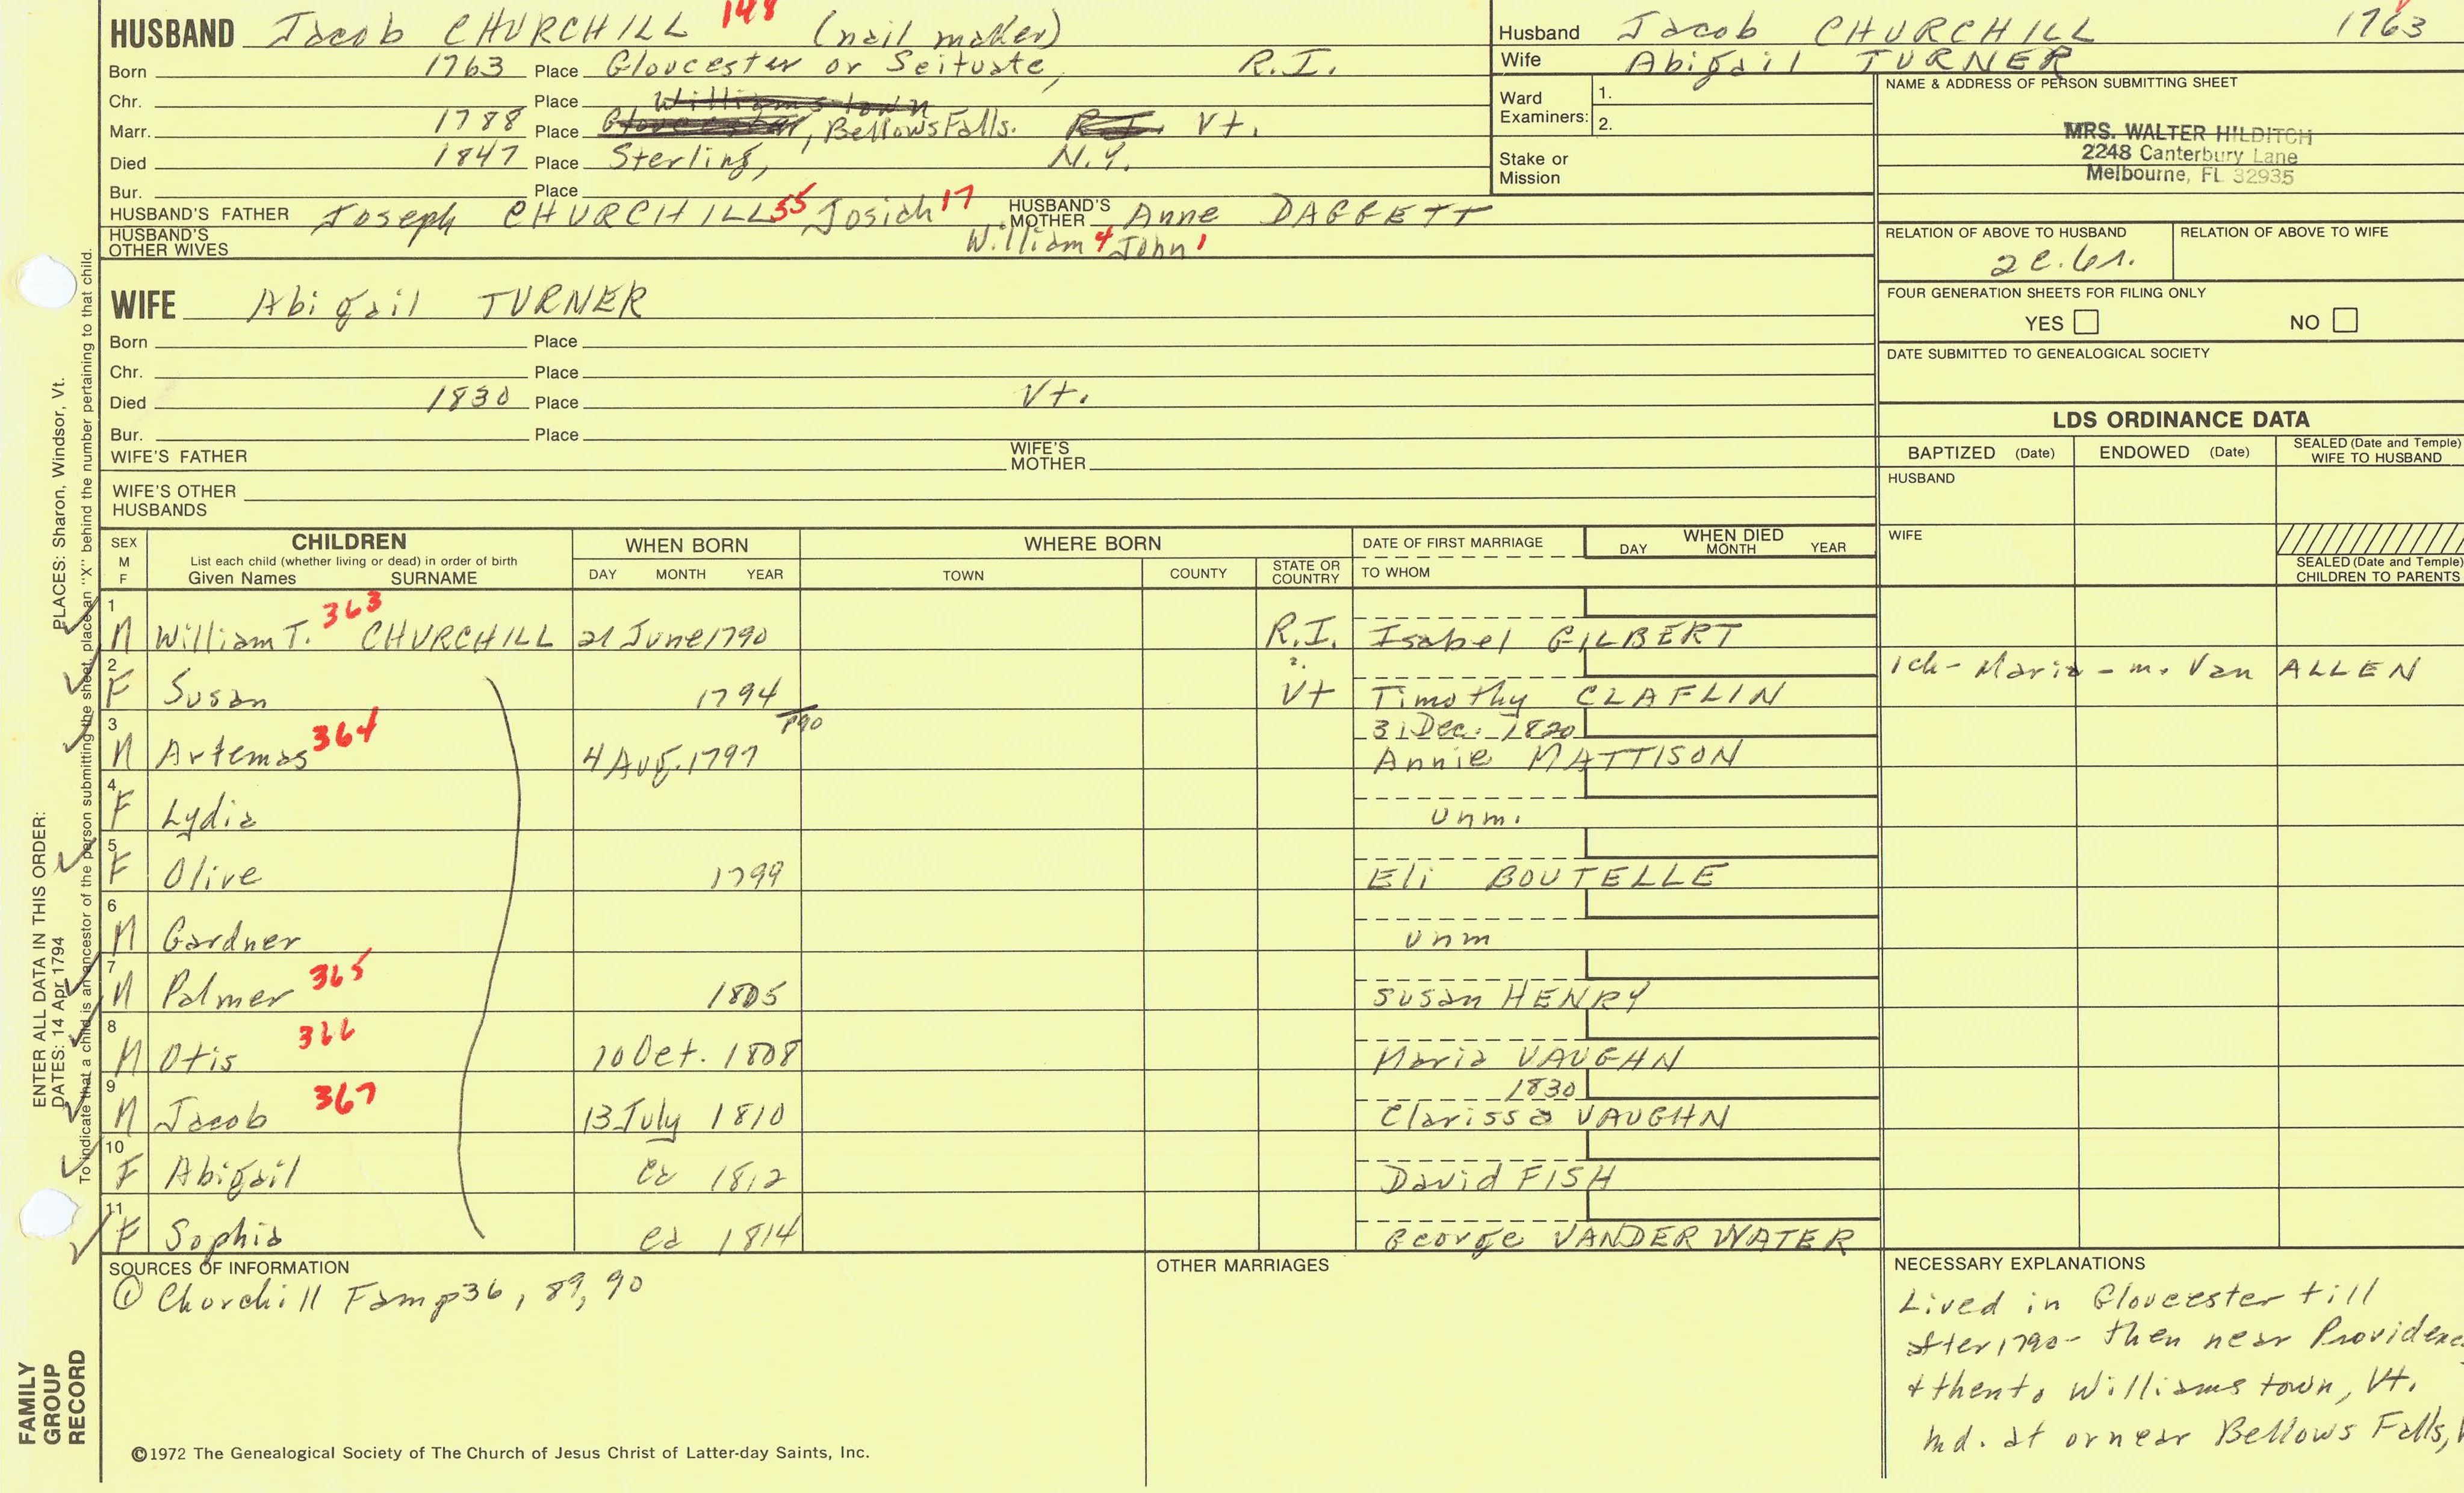 HUSBAND Jacob CHURCHILL 148 (nail maker)
Born 1763 Place Gloucester or Scituate, R.I.
Chr. Place Williamstown
Marr. 1788 Place Gloucester, Bellows Falls. R.I. Vt.
Died 1847 Place Sterling, N.Y.
Bur. Place
HUSBAND'S FATHER Joseph CHURCHILL 55 Josiah 17 HUSBAND'S MOTHER Anne DAGGETT
HUSBAND'S OTHER WIVES William 4 John 1
Husband Jacob CHURCHILL 1763
Wife Abigail TURNER
Ward Examiners: 1.
2.
Stake or Mission
NAME & ADDRESS OF PERSON SUBMITTING SHEET
MRS. WALTER HILDITCH
2248 Canterbury Lane
Melbourne, FL 32935
RELATION OF ABOVE TO HUSBAND RELATION OF ABOVE TO WIFE
2c.6r.
FOUR GENERATION SHEETS FOR FILING ONLY
YES NO
DATE SUBMITTED TO GENEALOGICAL SOCIETY
WIFE Abigail TURNER
Born Place
Chr. Place
Died 1830 Place Vt.
Bur. Place
WIFE'S FATHER WIFE'S MOTHER
WIFE'S OTHER HUSBANDS
LDS ORDINANCE DATA
BAPTIZED (Date) ENDOWED (Date) SEALED (Date and Temple) WIFE TO HUSBAND
HUSBAND
WIFE
SEALED (Date and Temple) CHILDREN TO PARENTS
SEX M F CHILDREN WHEN BORN WHERE BORN DATE OF FIRST MARRIAGE WHEN DIED
List each child (whether living or dead) in order of birth
Given Names SURNAME DAY MONTH YEAR TOWN COUNTY STATE OR COUNTRY TO WHOM DAY MONTH YEAR
1 M William T. 363 CHURCHILL 21 June 1790 R.I. Isabel GILBERT
2 F Susan 1794 ? Vt Timothy CLAFLIN 1ch - Maria - m. Van ALLEN
p90
3 M Artemas 364 4 Aug. 1797 31 Dec. 1820 Annie MATTISON
4 F Lydia unm.
5 F Olive 1799 Eli BOUTELLE
6 M Gardner unm
7 M Palmer 365 1805 Susan HENRY
8 M Otis 366 10 Oct. 1808 Maria VAUGHN
9 M Jacob 367 13 July 1810 1830 Clarissa VAUGHN
10 F Abigail ca 1812 David FISH
11 F Sophia ca 1814 George VANDER WATER
SOURCES OF INFORMATION
① Churchill Fam p36, 89, 90
OTHER MARRIAGES
NECESSARY EXPLANATIONS
Lived in Gloucester till
after 1790 - then near Providenc
+ then to Williamstown, Vt.
Md. at or near Bellows Falls,
©1972 The Genealogical Society of The Church of Jesus Christ of Latter-day Saints, Inc.
FAMILY GROUP RECORD
ENTER ALL DATA IN THIS ORDER:
DATES: 14 Apr 1794 PLACES: Sharon, Windsor, Vt.
To indicate that a child is an ancestor of the person submitting the sheet, place an "X" behind the number pertaining to that child.